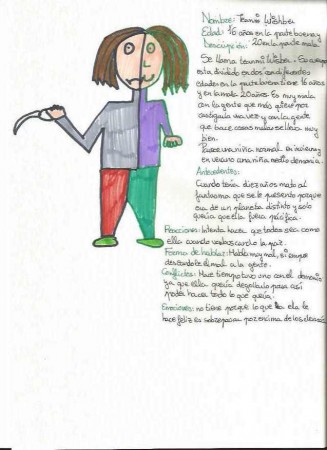 Nombre: Teannii Wishber
Edad: 16 años en la parte buena y
Descripción: 20 en la parte mala.
Se llama teannii Wisber. Su cuerpo
esta dividido en dos con diferentes
edades en la parte buena tiene 16 años
y en la mala 20 años. Es muy mala
con la gente que más quiere por
castigada una vez y con la gente
que hace cosas malas se lleva muy
bien.
Parece una niña normal en invierno y
en verano una niña medio demonia.
Antecedentes:
Cuando tenía diez años mato al
fantasma que se le presento porque
era de un planeta distinto y solo
quería que ella fuera pacífica.
Reacciones: Intenta hacer que todos sea como
ella cuando verlos curde la paz.
Forma de hablar: Habla muy mal, siempre
deseandole el mal a la gente.
Conflictos: Hace tiempo tuvo uno con el demonio
ya que ella quería degollarlo para así
poder hacer todo lo que quería.
Emociones: no tiene porque lo que a ella le
hace feliz es sobrepasar por encima de los demás.